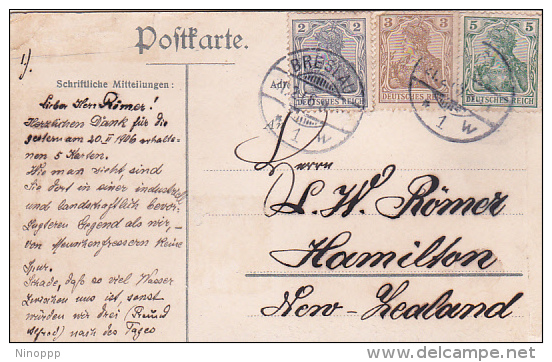 1)
Postkarte.
2
3
5
DEUTSCHES REICH
DEUTSCHES REICH
DEUTSCHES REICH
BRESLAU
1 w
1 w
Schriftliche Mitteilungen:
Lieber Herr Römer!
Herzlichen Dank für die
gestern am 20. II 1906 erhalte-
nen 5 Karten.
Wie man sieht, sind
Sie dort in einer industriell
und landschaftlich bevor-
zugteren Gegend als wir,
von Menschenfressern keine
Spur.
Schade, daß so viel Wasser
zwischen uns ist, sonst
würden wir drei (Freund
Alfred) nach des Tages
Herrn
L. W. Römer
Hamilton
New-Zealand
Ninoppp
delcampe.net